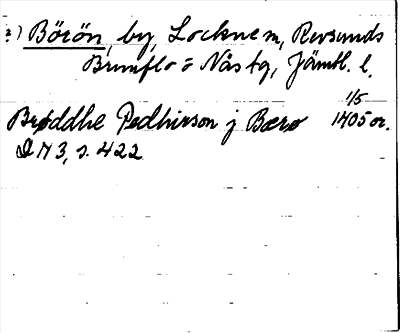 2) Börön, by, Locknem, Revsunds
Brunflo o Näs tg, Jämtl. l.
1/5
Brøddhe Pedhirson j Bærø 1405 or.
DN 3, s. 422